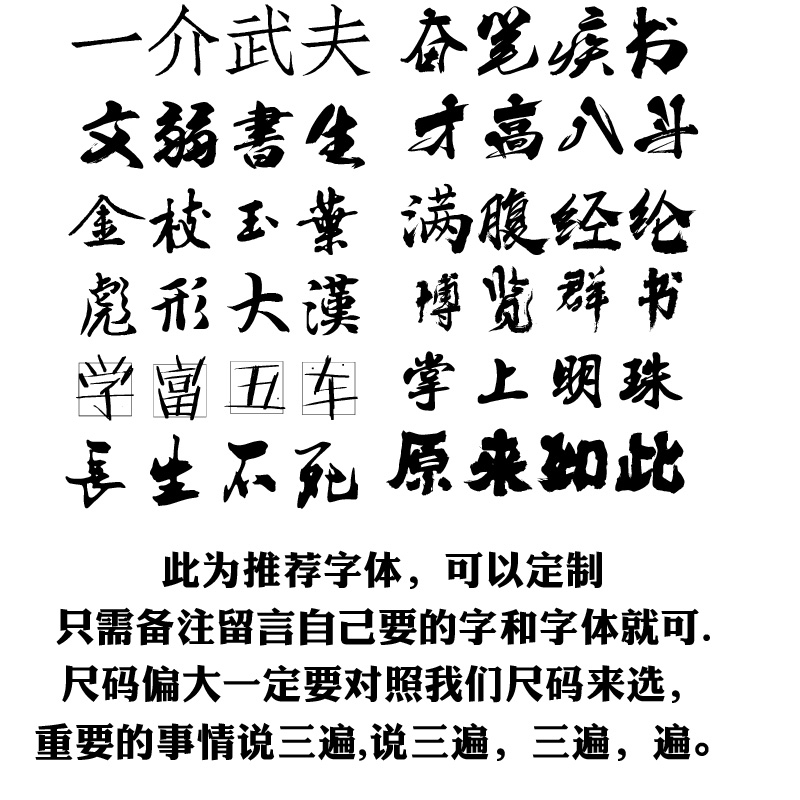 一介武夫 奋笔疾书
文弱書生 才高八斗
金枝玉葉 满腹经纶
彪形大漢 博览群书
学富五车 掌上明珠
長生不死 原来如此
此为推荐字体，可以定制
只需备注留言自己要的字和字体就可.
尺码偏大一定要对照我们尺码来选，
重要的事情说三遍,说三遍，三遍，遍。